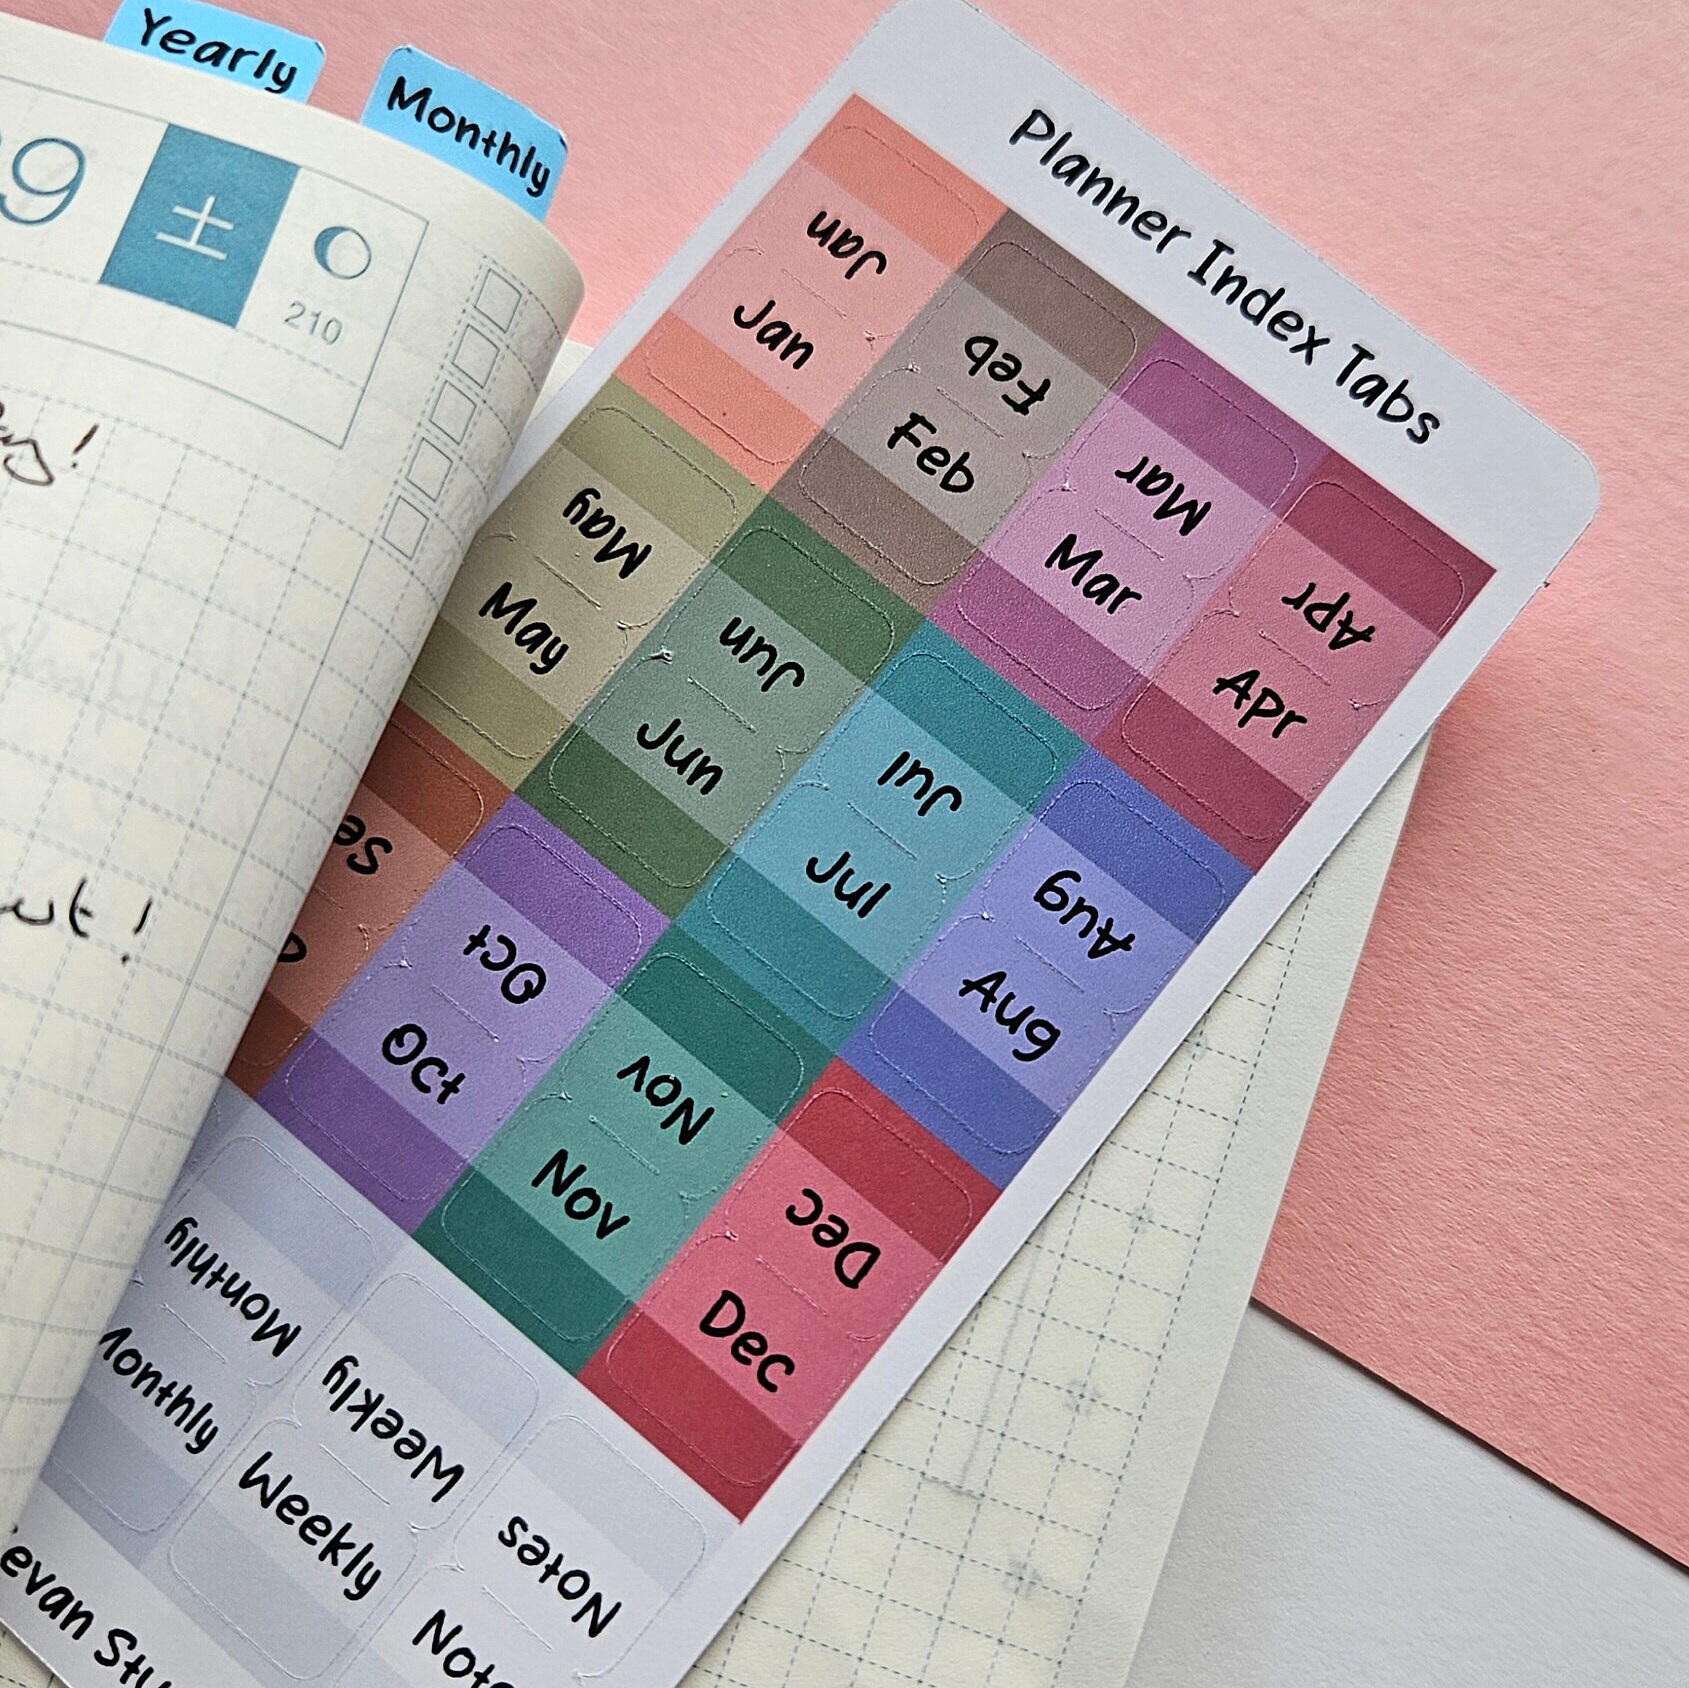 Yearly
Monthly
土
210
Planner Index Tabs
Jan
Jan
Feb
Feb
Mar
Mar
Apr
Apr
May
May
Jun
Jun
Jul
Jul
Aug
Aug
Oct
Oct
Nov
Nov
Dec
Dec
Monthly
Monthly
Weekly
Weekly
Notes